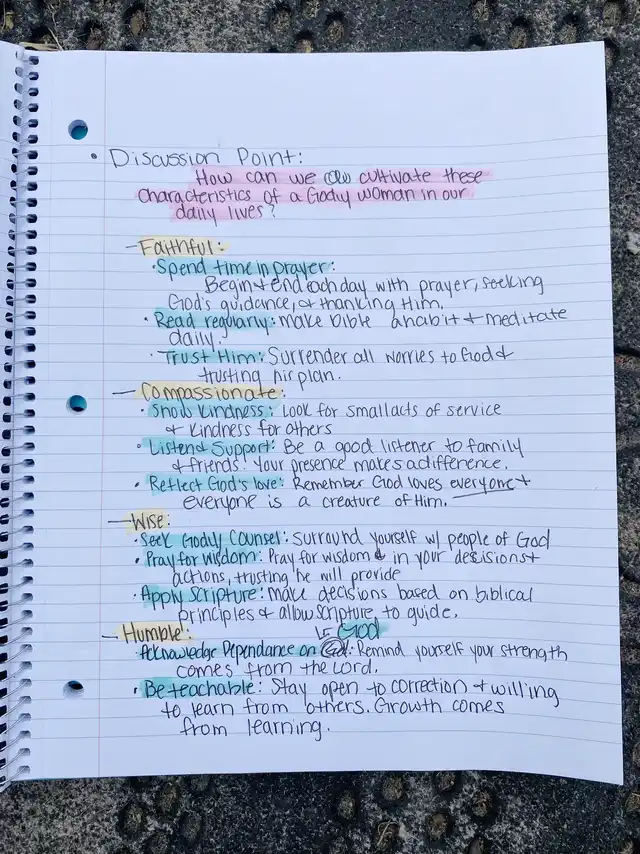 • Discussion Point:
How can we cultivate these
characteristics of a Godly woman in our
daily lives?
- Faithful:
• Spend time in prayer:
Begin + end each day with prayer, seeking
God's guidance, + thanking Him.
• Read regularly: make bible a habit + meditate
daily.
• Trust Him: Surrender all worries to God +
trusting his plan.
- Compassionate:
• Show kindness: Look for small acts of service
+ kindness for others
• Listen + Support: Be a good listener to family
+ friends. Your presence makes a difference.
• Reflect God's love: Remember God loves everyone +
everyone is a creature of Him.
- Wise:
• Seek Godly Counsel: Surround yourself w/ people of God
• Pray for wisdom: Pray for wisdom + in your decisions +
actions, trusting he will provide
• Apply Scripture: Make decisions based on biblical
principles + allow scripture to guide.
- Humble:
God
• Acknowledge Dependance on : Remind yourself your strength
comes from the Lord.
• Be teachable: Stay open to correction + willing
to learn from others. Growth comes
from learning.